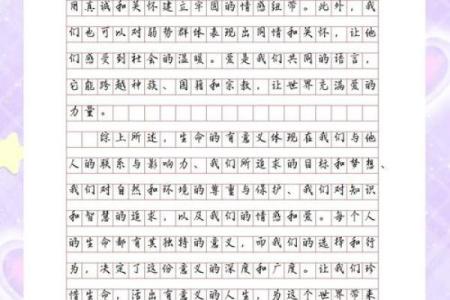 用真诚和关怀建立牢固的情感纽带。此外，我
们也可以对弱势群体表现出同情和关怀，让他
们感受到社会的温暖。爱是我们共同的语言，
它能跨越种族、国籍和宗教，让世界充满爱的
力量。
综上所述，生命的有意义体现在我们与他
人的联系与影响力、我们所追求的目标和梦想、
我们对自然和环境的尊重与保护、我们对知识
和智慧的追求，以及我们的情感和爱。每个人
的生命都有其独特的意义，而我们的选择和行
为，决定了这份意义的深度和广度。让我们珍
惜生命，活出有意义的人生，为这个世界带来